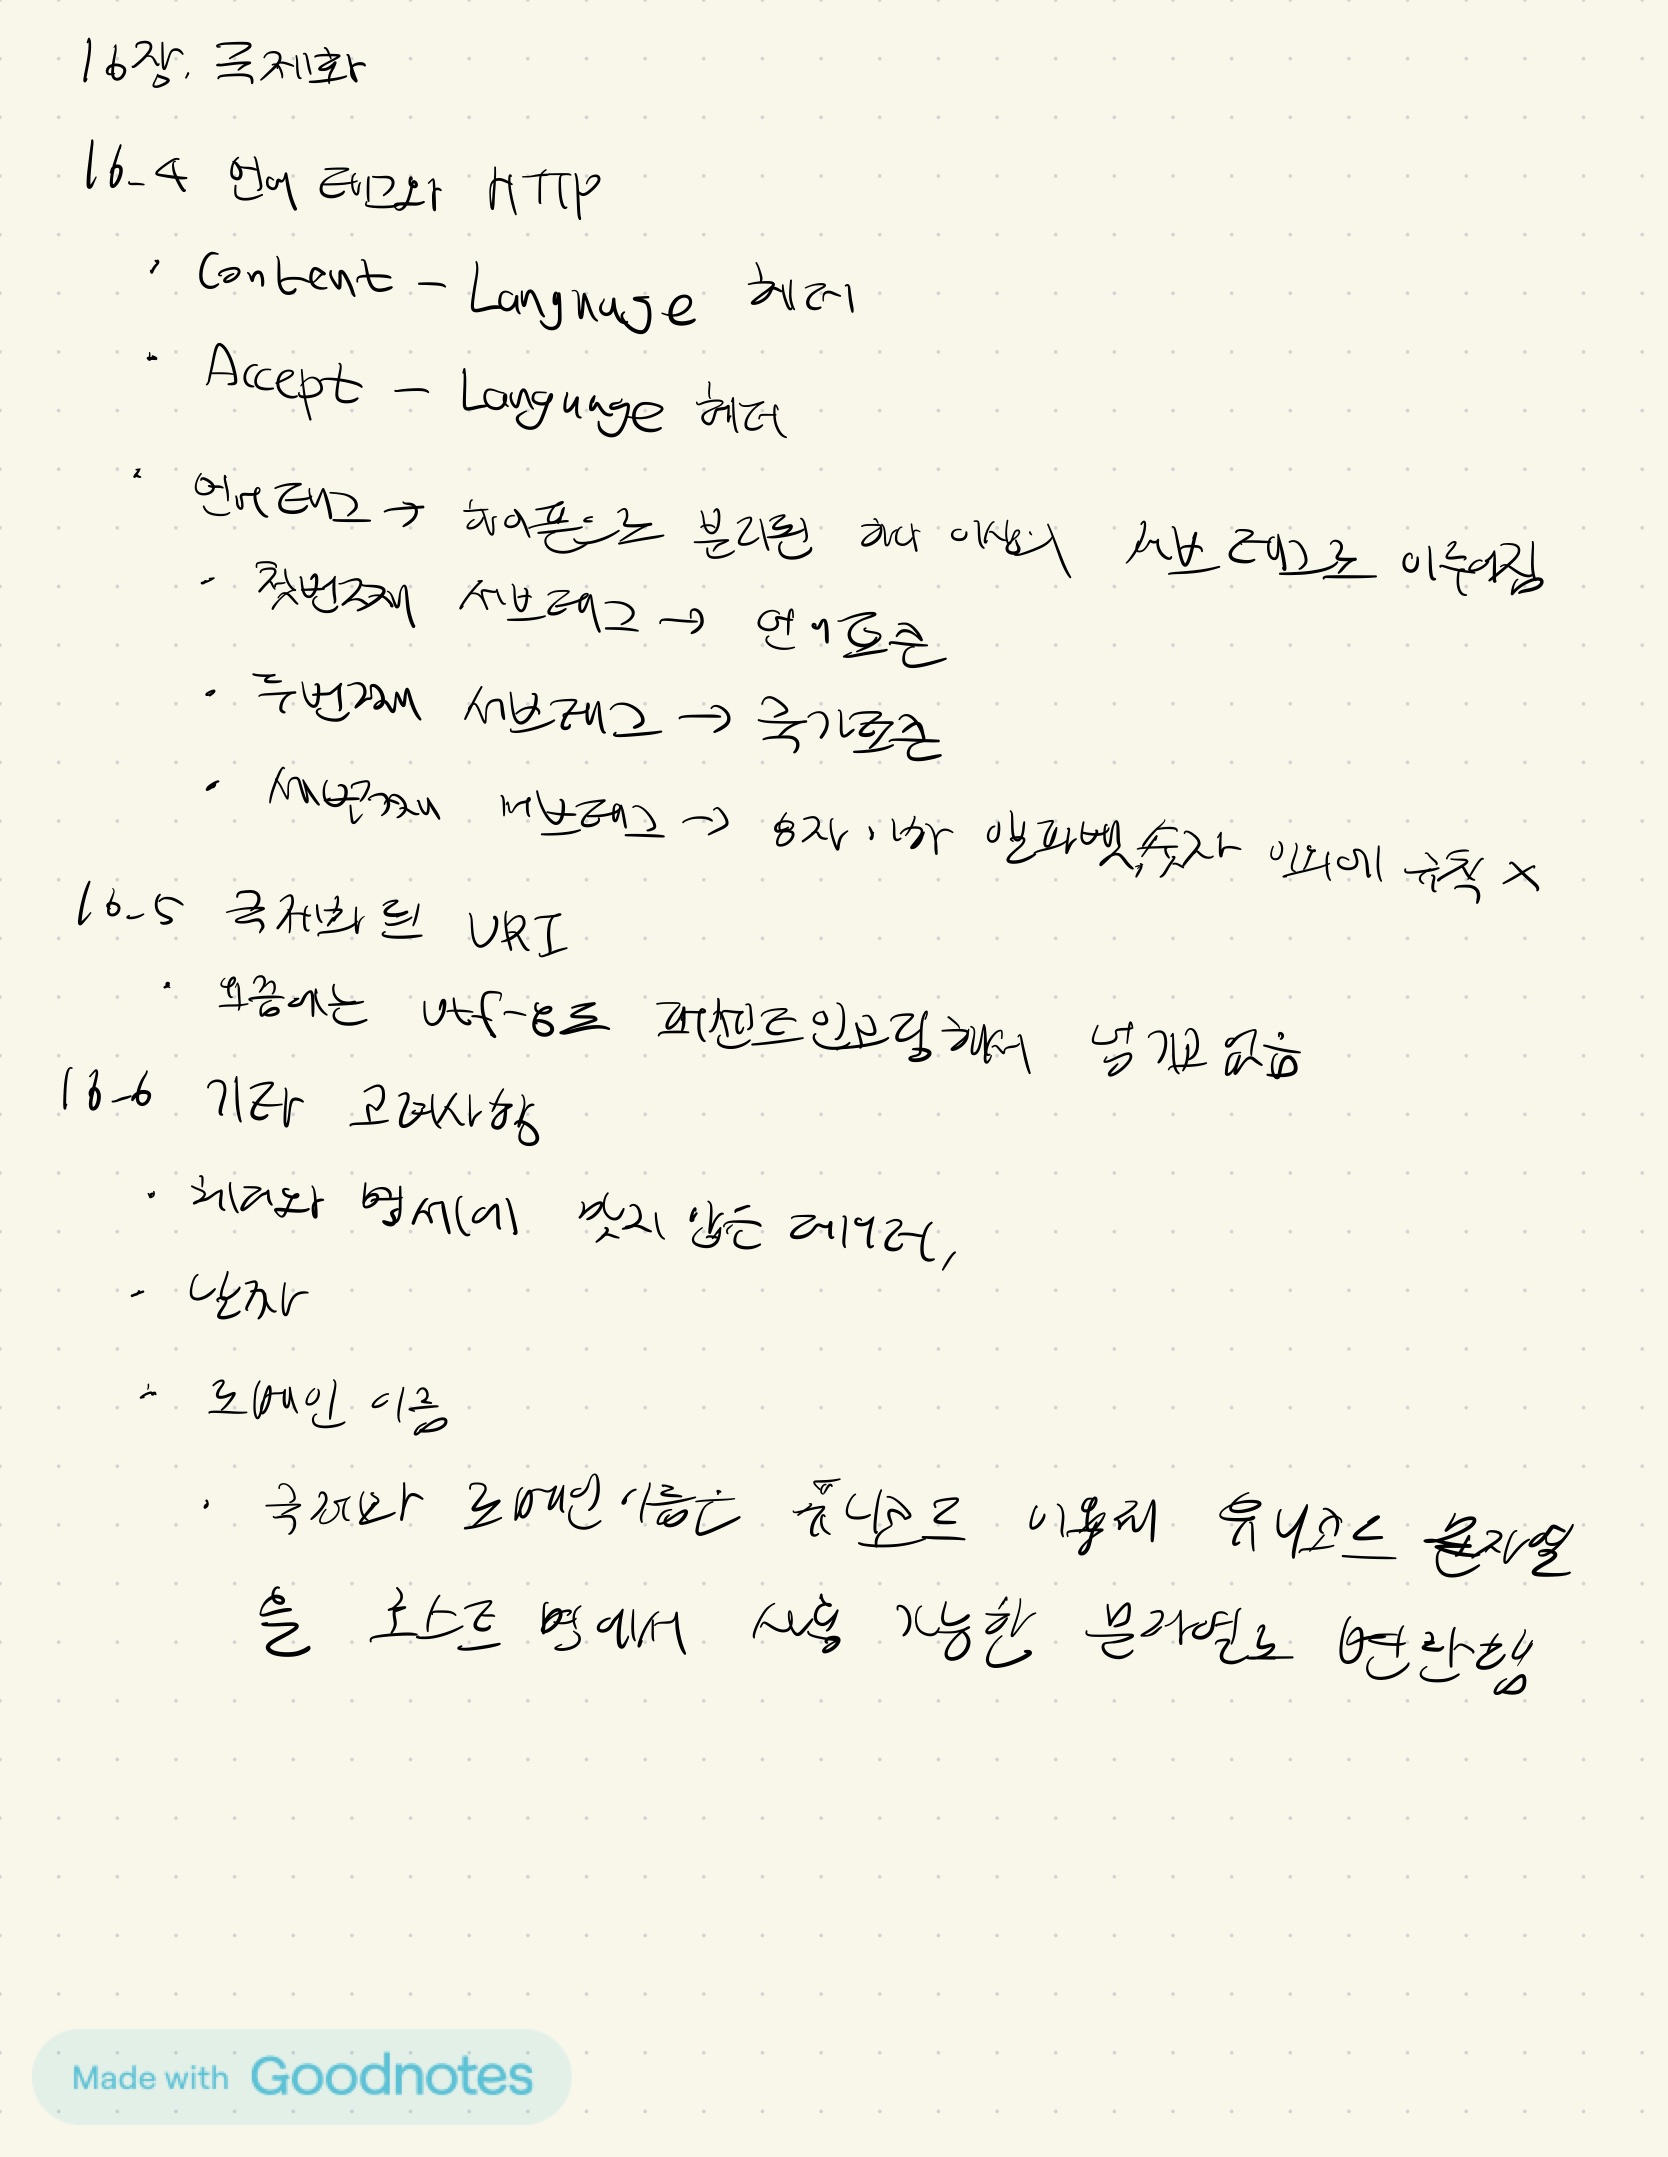 16장. 국제화
16-4 언어 태그와 HTTP
· Content - Language 헤더
· Accept - Language 헤더
· 언어태그 → 하이픈으로 분리된 하나 이상의 서브태그로 이루어짐
- 첫번째 서브태그 → 언어토큰
· 두번째 서브태그 → 국가토큰
· 세번째 서브태그 → 8자 이하 알파벳,숫자 이외에 규칙 x
16-5 국제화된 URI
· 요즘에는 utf-8로 퍼센트인코딩해서 넘기고 있음
16-6 기타 고려사항
· 헤더와 명세에 맞지 않은 데이터,
- 날짜
- 도메인 이름
· 국제화 도메인 이름은 퓨니코드 이용해 유니코드 문자열
을 호스트 명에서 사용 가능한 문자열로 변환함
Made with Goodnotes